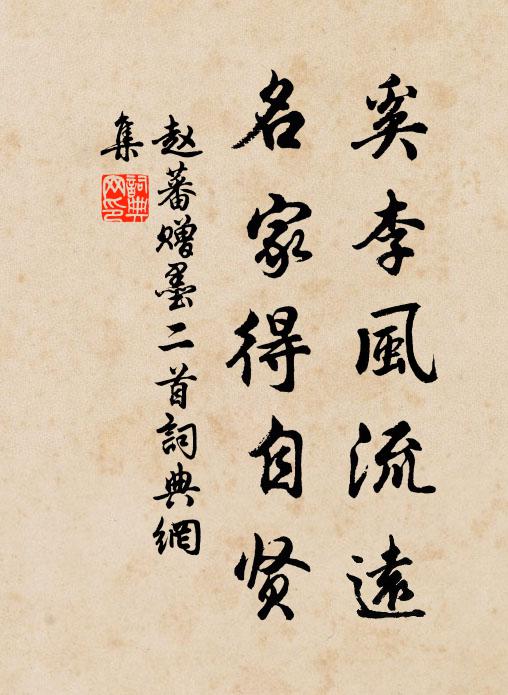 奚李風流遠
名家得自贤
赵蕃赠墨二首詞典網
集
詞典網印